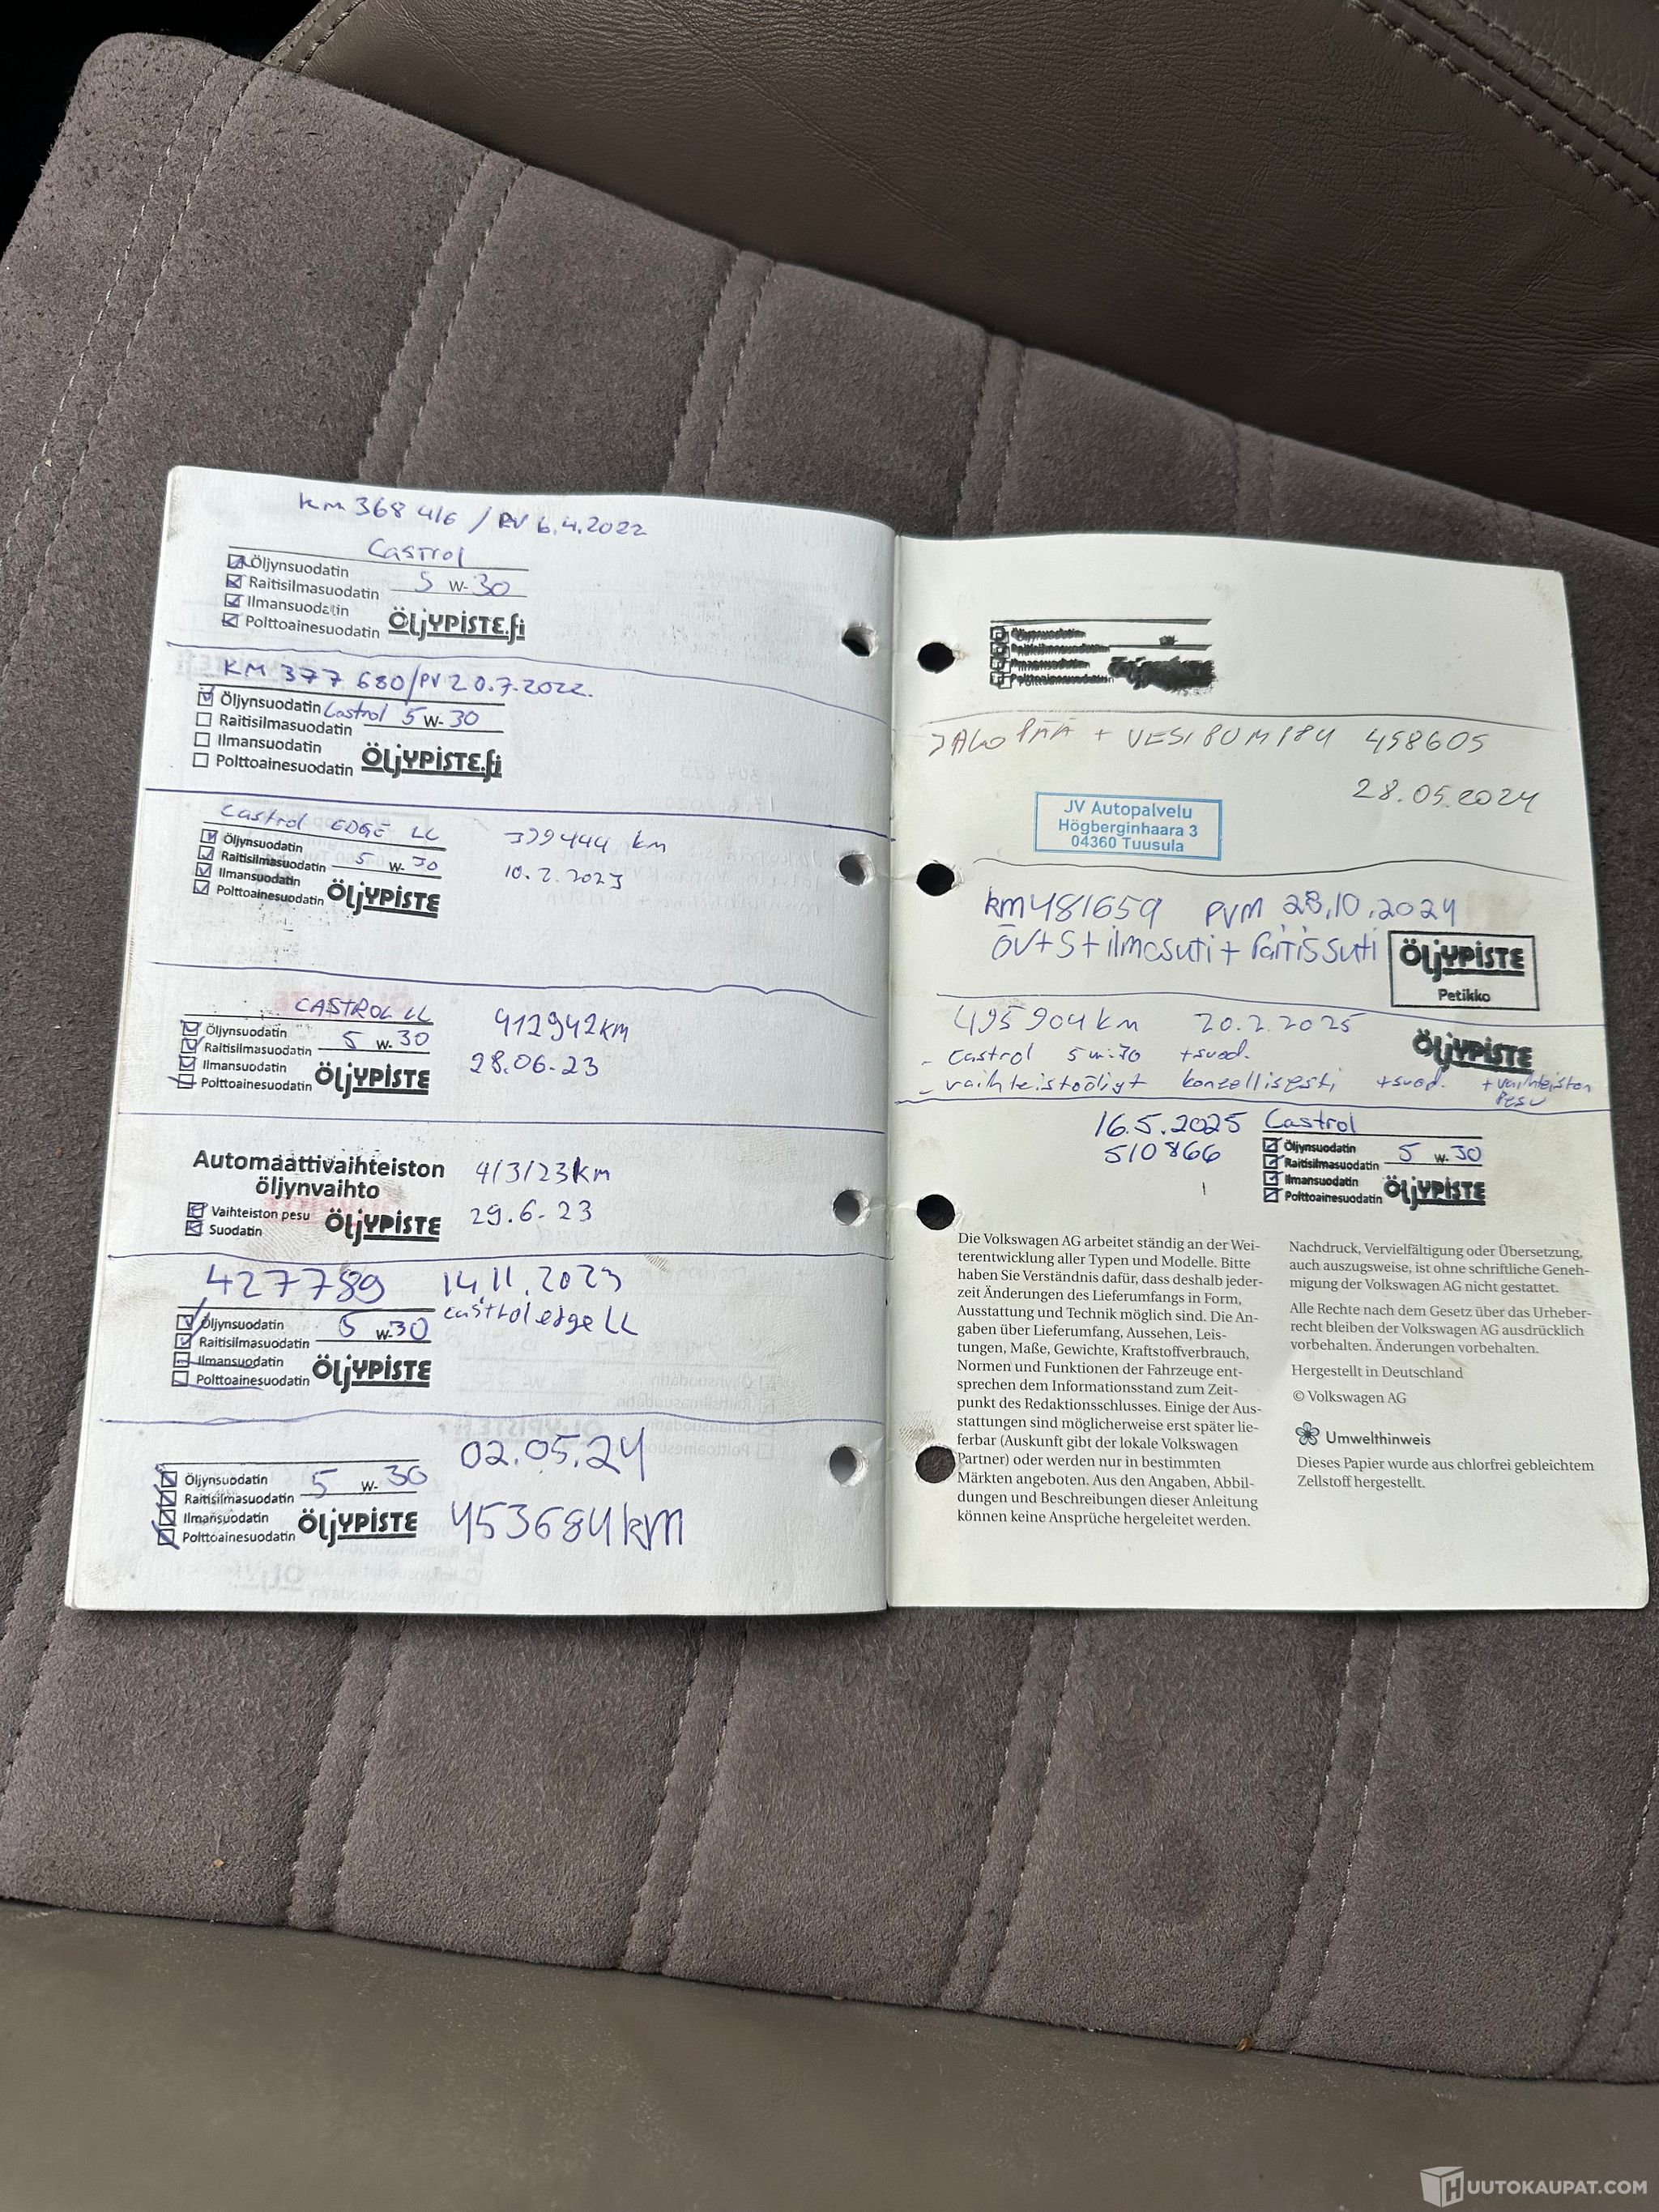 km 368 416 / PV 6.4.2022
Castrol
Öljynsuodatin
Raitisilmasuodatin 5 W- 30
Ilmansuodatin
Polttoainesuodatin ÖljYPiSTE.fi
KM 377 680/PV 20.7.2022.
Öljynsuodatin Castrol 5 W- 30
Raitisilmasuodatin
Ilmansuodatin
Polttoainesuodatin ÖljYPiSTE.fi
Castrol EDGE LL 399444 km
Öljynsuodatin
Raitisilmasuodatin 5 W- 30 10.2.2023
Ilmansuodatin
Polttoainesuodatin ÖljYPiSTE
CASTROL LL 412942km
Öljynsuodatin
Raitisilmasuodatin 5 W- 30
Ilmansuodatin 28.06.23
Polttoainesuodatin ÖljYPiSTE
Automaattivaihteiston 413123km
öljynvaihto
Vaihteiston pesu 29.6-23
Suodatin ÖljYPiSTE
427789 14.11.2023
castrol edge LL
Öljynsuodatin
Raitisilmasuodatin 5 W- 30
Ilmansuodatin
Polttoainesuodatin ÖljYPiSTE
02.05.24
Öljynsuodatin 5 W- 30
Raitisilmasuodatin
Ilmansuodatin
Polttoainesuodatin ÖljYPiSTE 453684km
Öljynsuodatin
Raitisilmasuodatin
Ilmansuodatin
Polttoainesuodatin
JAKOPÄÄ + VESIPUMPPU 458605
28.05.2024
JV Autopalvelu
Högberginhaara 3
04360 Tuusula
km481659 PVM 28.10.2024
ÖV+S+ilmasuti+Raitissuti
ÖljYPiSTE
Petikko
495904km 20.2.2025
ÖljYPiSTE
- Castrol 5w-30 +suod.
- vaihteistoöljyt +suod. +vaihteiston
pesu
16.5.2025 Castrol
510866
Öljynsuodatin
Raitisilmasuodatin 5 W- 30
Ilmansuodatin
Polttoainesuodatin ÖljYPiSTE
Die Volkswagen AG arbeitet ständig an der Wei-
terentwicklung aller Typen und Modelle. Bitte
haben Sie Verständnis dafür, dass deshalb jeder-
zeit Änderungen des Lieferumfangs in Form,
Ausstattung und Technik möglich sind. Die An-
gaben über Lieferumfang, Aussehen, Leis-
tungen, Maße, Gewichte, Kraftstoffverbrauch,
Normen und Funktionen der Fahrzeuge ent-
sprechen dem Informationsstand zum Zeit-
punkt des Redaktionsschlusses. Einige der Aus-
stattungen sind möglicherweise erst später lie-
ferbar (Auskunft gibt der lokale Volkswagen
Partner) oder werden nur in bestimmten
Märkten angeboten. Aus den Angaben, Abbil-
dungen und Beschreibungen dieser Anleitung
können keine Ansprüche hergeleitet werden.
Nachdruck, Vervielfältigung oder Übersetzung,
auch auszugsweise, ist ohne schriftliche Geneh-
migung der Volkswagen AG nicht gestattet.
Alle Rechte nach dem Gesetz über das Urheber-
recht bleiben der Volkswagen AG ausdrücklich
vorbehalten. Änderungen vorbehalten.
Hergestellt in Deutschland
© Volkswagen AG
Umwelthinweis
Dieses Papier wurde aus chlorfrei gebleichtem
Zellstoff hergestellt.
HUUTOKAUPAT.COM